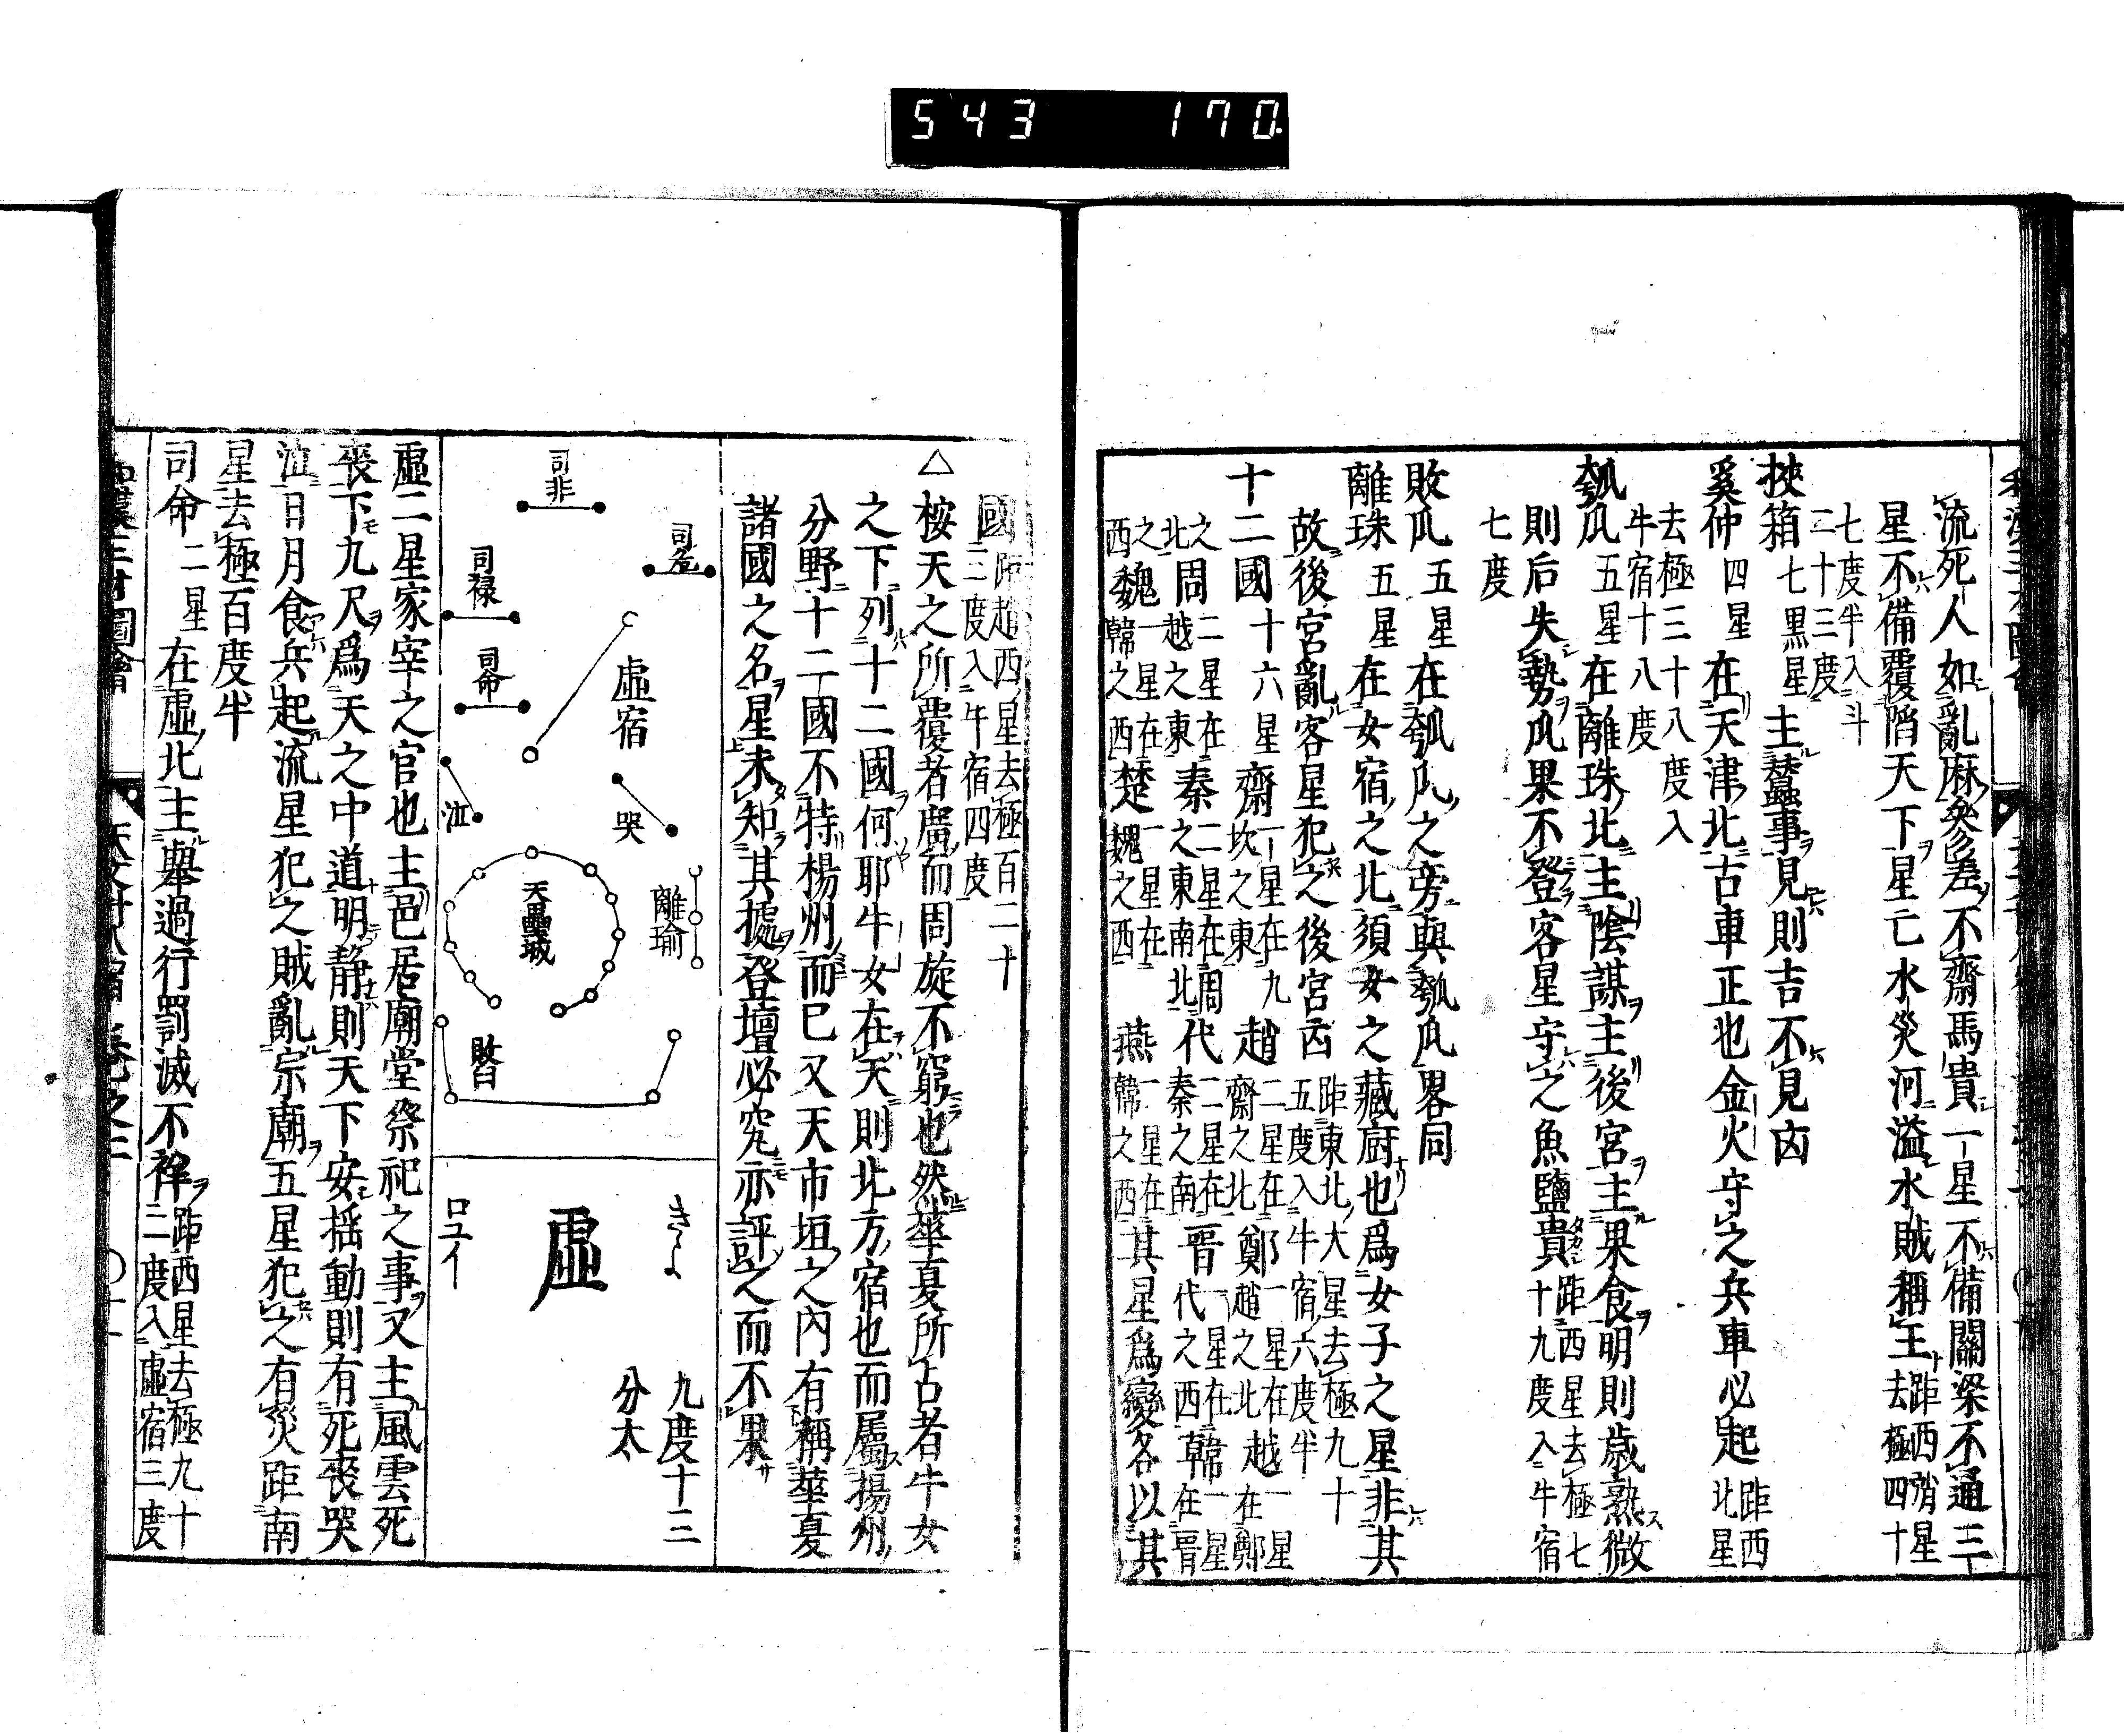 543 170
流死人如亂麻參差不齊馬貴一星不備關梁不通三
星不備覆陷天下星亡水災河溢水賊稱王距西稍星去極四十
七度半入斗二十三度
扶箱七黒星主蠶事見則吉不見凶
奚仲四星在天津北古車正也金火守之兵車必起距西北星
去極三十八度入牛宿十八度
瓠瓜五星在離珠北主陰謀主後宮主果食明則歳熟微
則后失勢瓜果不登客星守之魚鹽貴距西星去極七十九度入牛宿
七度
敗瓜五星在瓠瓜之旁與瓠瓜畧同
離珠五星在女宿之北須女之藏府也爲女子之星非其
故後宮亂客星犯之後宮凶距東北大星去極九十五度入牛宿六度半
十二國十六星齊一星在九坎之東趙二星在齊之北鄭一星在趙之北越一星在鄭
之北周二星在越之東秦二星在周之東南北代二星在秦之南晋一星在代之西韓一星在晋
之西魏一星在韓之西楚一星在魏之西燕一星在韓之西其星爲變各以其
國距趙西星去極百二十三度入牛宿四度
△桉天之所覆者廣而周旋不窮也然華夏所占者牛女
之下列十二國何耶牛女在天則北方宿也而屬揚州
分野十二國不特楊州而已又天市垣之内有稱華夏
諸國之名星未知其據登壇必究亦評之而不果
司非
司危
司禄
司命
虛宿
泣
哭
離瑜
天壘城
敗臼
きよ
虛
ロユイ
九度十三
分太
虛二星家宰之官也主邑居廟堂祭祀之事又主風雲死
喪下九尺爲天之中道明静則天下安揺動則有死喪哭
泣日月食兵起流星犯之賊亂宗廟五星犯之有災距南
星去極百度半
司命二星在虛北主舉過行罰滅不祥距西星去極九十二度入虛宿三度